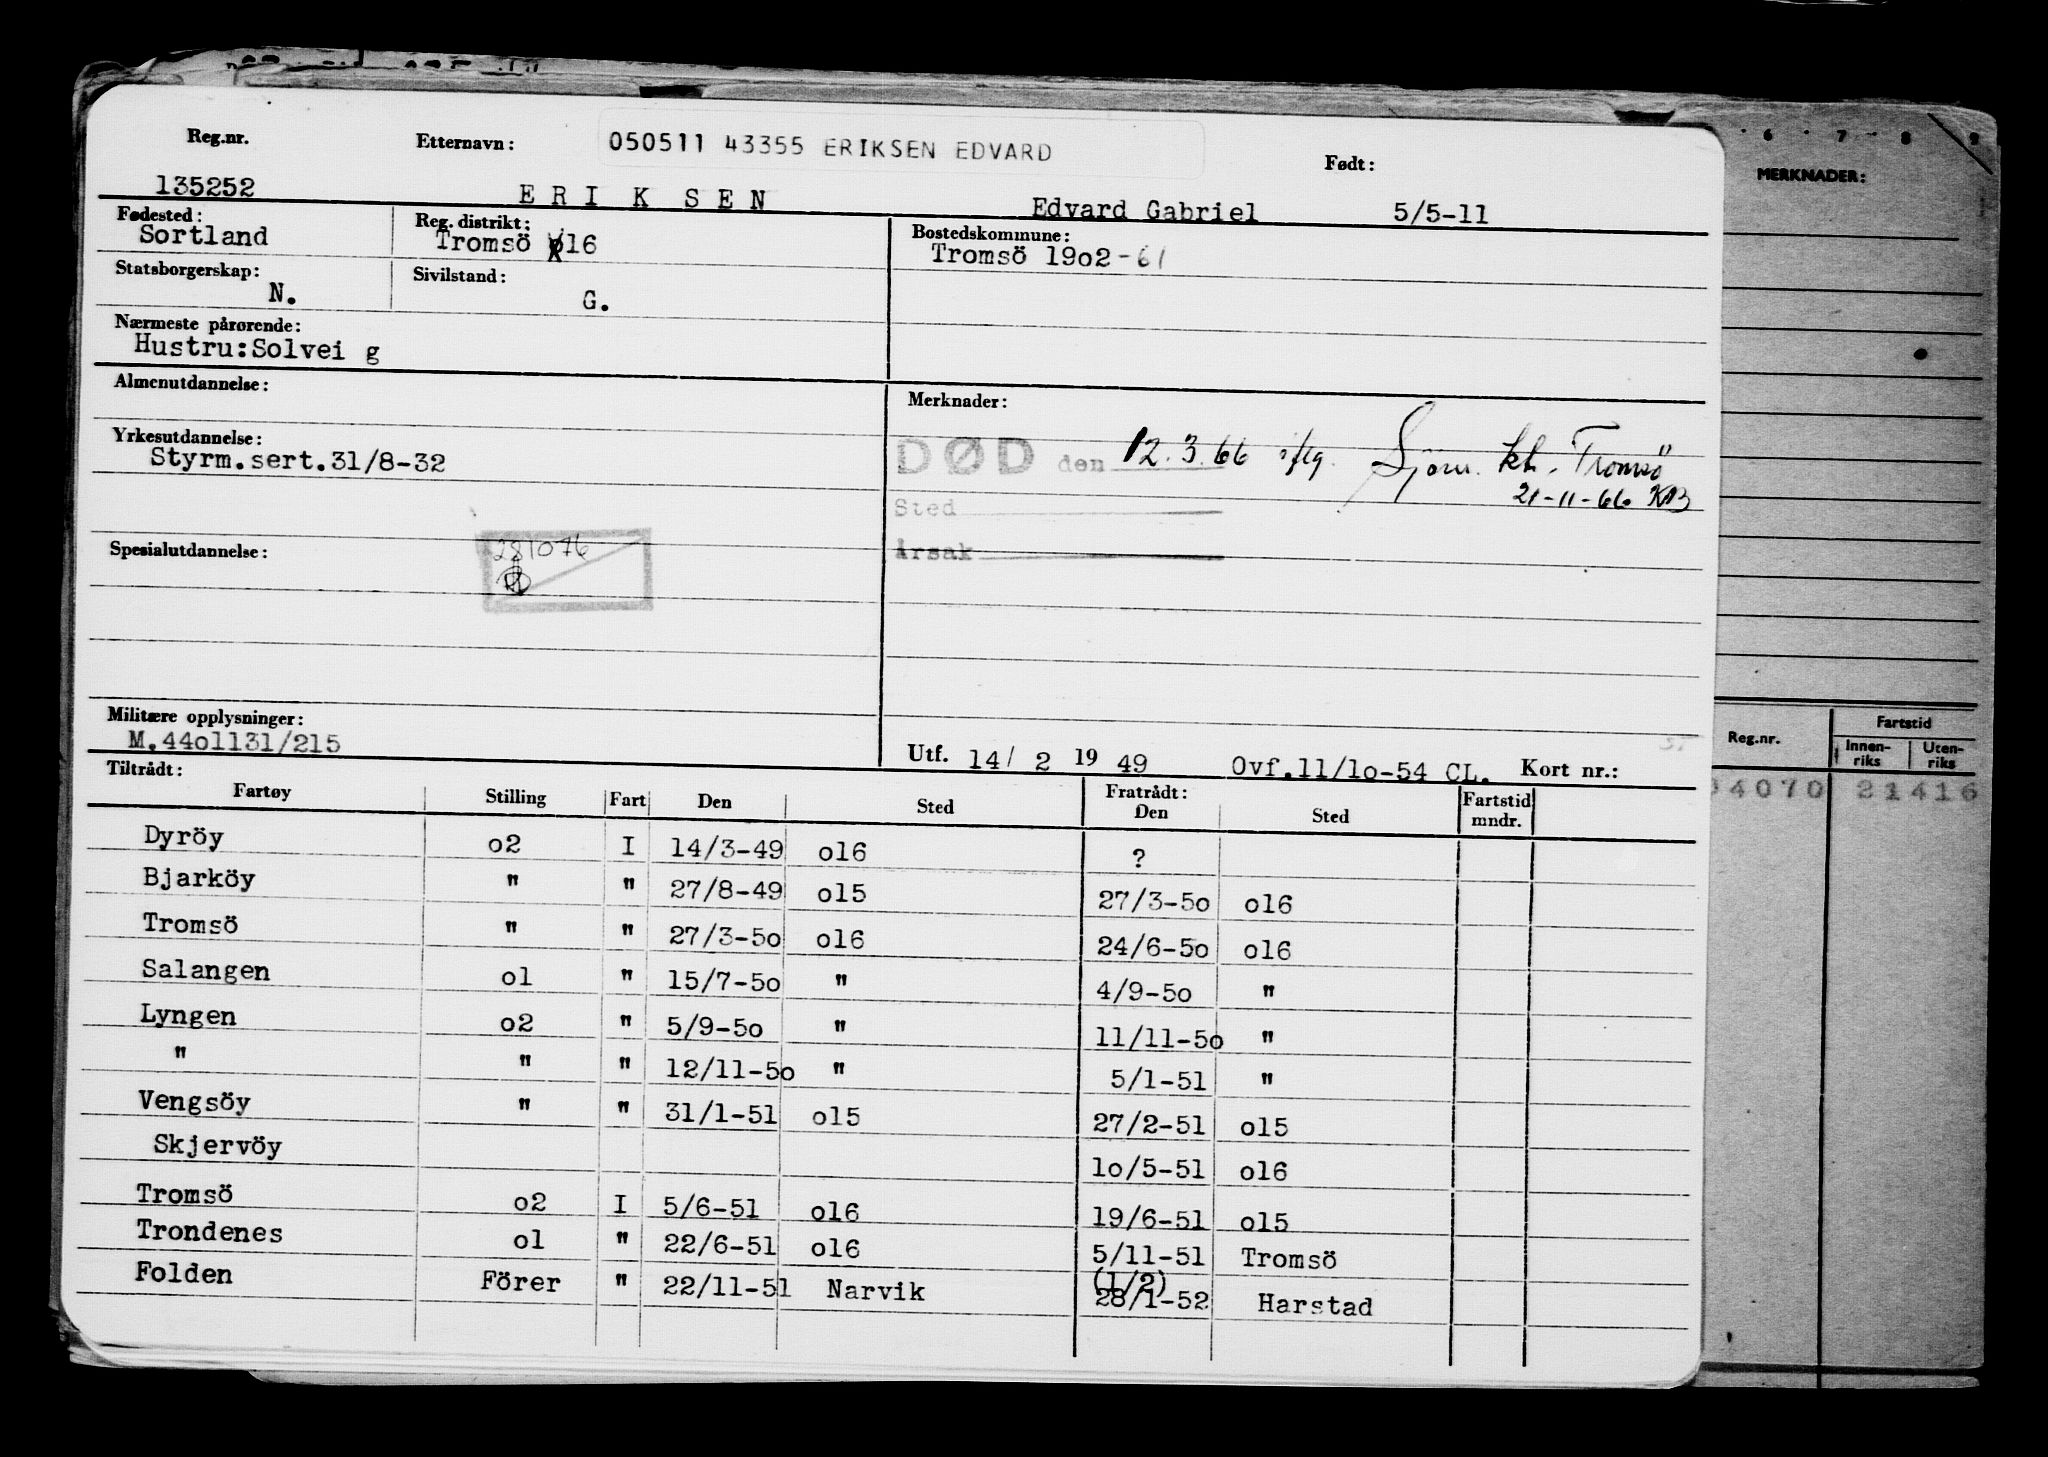 Reg.nr. Etternavn: 050511 43355 ERIKSEN EDVARD Født:
135252 E R I K SEN Edvard Gabriel 5/5-11
Fødested: Reg. distrikt: Bostedskommune:
Sortland Tromsö 16 Tromsö 19o2-61
Statsborgerskap: Sivilstand:
N. G.
Nærmeste pårørende:
Hustru:Solvei g
Almenutdannelse: Merknader:
Yrkesutdannelse: DØD den 12.3.66 iflg. Sjöm. kt. Tromsö
Styrm.sert.31/8-32 21-11-66 KB
Sted
Spesialutdannelse: 281076 Årsak
Militære opplysninger:
M.44o1131/215 Utf. 14/ 2 19 49 Ovf.11/1o-54 CL. Kort nr.:
Tiltrådt: Fratrådt:
Fartøy Stilling Fart Den Sted Den Sted Fartstid mndr.
Dyröy o2 I 14/3-49 o16 ?
Bjarköy " " 27/8-49 o15 27/3-5o o16
Tromsö " " 27/3-5o o16 24/6-5o o16
Salangen o1 " 15/7-5o " 4/9-5o "
Lyngen o2 " 5/9-5o " 11/11-5o "
" " " 12/11-5o " 5/1-51 "
Vengsöy " " 31/1-51 o15 27/2-51 o15
Skjervöy 1o/5-51 o16
Tromsö o2 I 5/6-51 o16 19/6-51 o15
Trondenes o1 " 22/6-51 o16 5/11-51 Tromsö
(1/2)
Folden Förer " 22/11-51 Narvik 28/1-52 Harstad
6 7 8 9
MERKNADER:
Reg.nr. Fartstid
Innen-riks Uten-riks
4070 21416